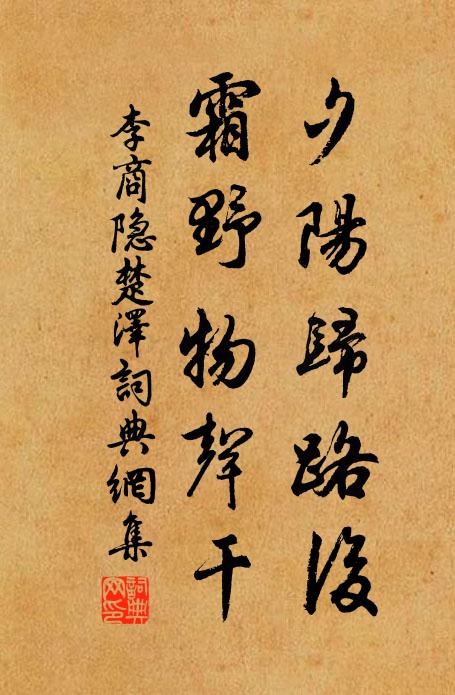 夕陽歸路後
霜野物聲干
李商隐楚澤詞典網集
詞典網印